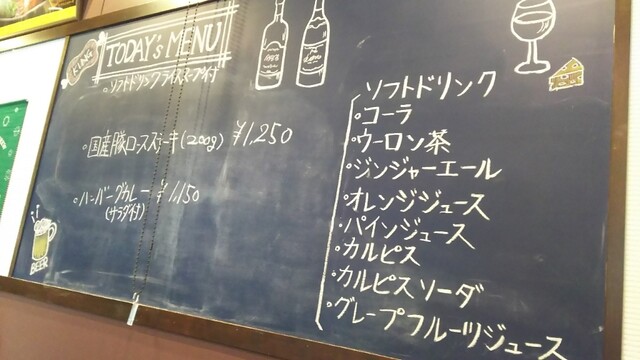 TODAY's MENU
・ソフトドリンクライススープ付
・国産豚ロースステーキ(200g) ¥1,250
・ハンバーグカレー ¥1,150
(サラダ付)
BEER
ソフトドリンク
・コーラ
・ウーロン茶
・ジンジャーエール
・オレンジジュース
・パインジュース
・カルピス
・カルピスソーダ
・グレープフルーツジュース